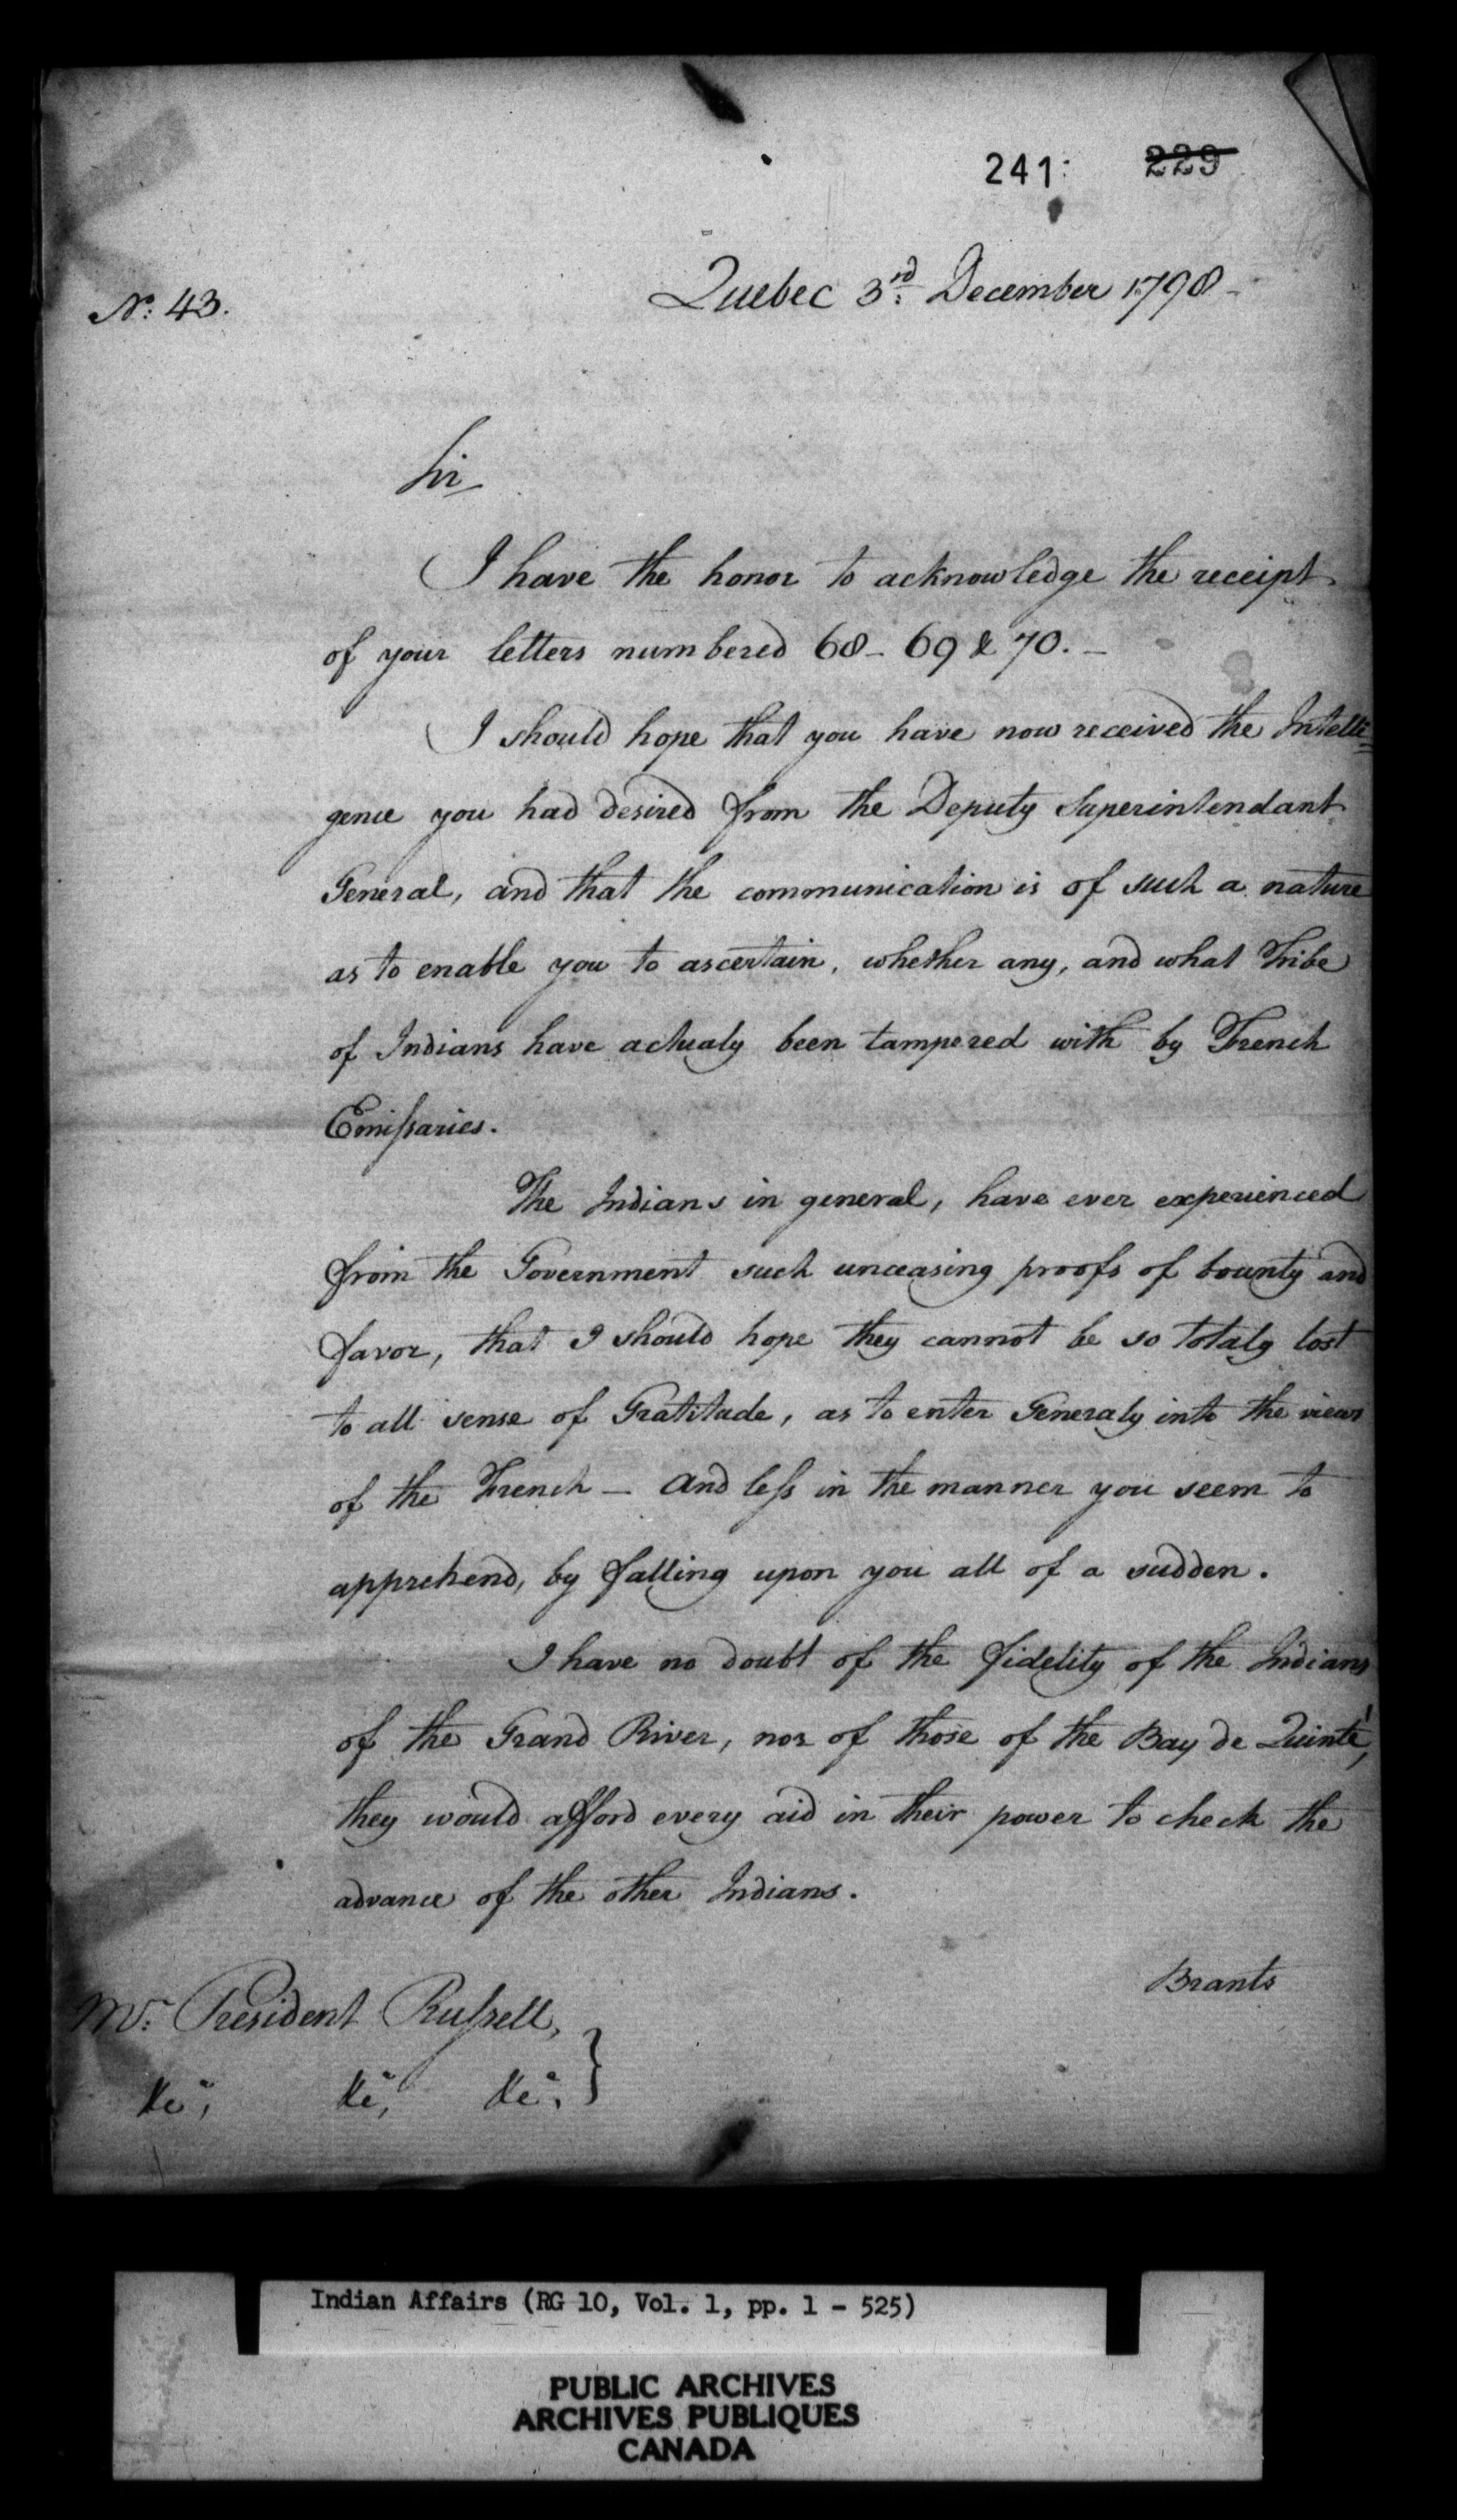 241: 229
Quebec 3rd December 1798 -
No: 43.
Sir
I have the honor to acknowledge the receipt
of your letters numbered 68 - 69 & 70. -
I should hope that you have now received the Intelli=
gence you had desired from the Deputy Superintendant
General, and that the communication is of such a nature
as to enable you to ascertain, whether any, and what Tribe
of Indians have actualy been tampered with by French
Emissaries.
The Indians in general, have ever experienced
from the Government such unceasing proofs of bounty and
favor, that I should hope they cannot be so totaly lost
to all sense of Gratitude, as to enter Generaly into the views
of the French - and less in the manner you seem to
apprehend, by falling upon you all of a sudden.
I have no doubt of the fidelity of the Indians
of the Grand River, nor of those of the Bay de Quinté,
they would afford every aid in their power to check the
advance of the other Indians.
Brants
Mr. President Russell,
&c, &c, &c. }
Indian Affairs (RG 10, Vol. 1, pp. 1 - 525)
PUBLIC ARCHIVES
ARCHIVES PUBLIQUES
CANADA